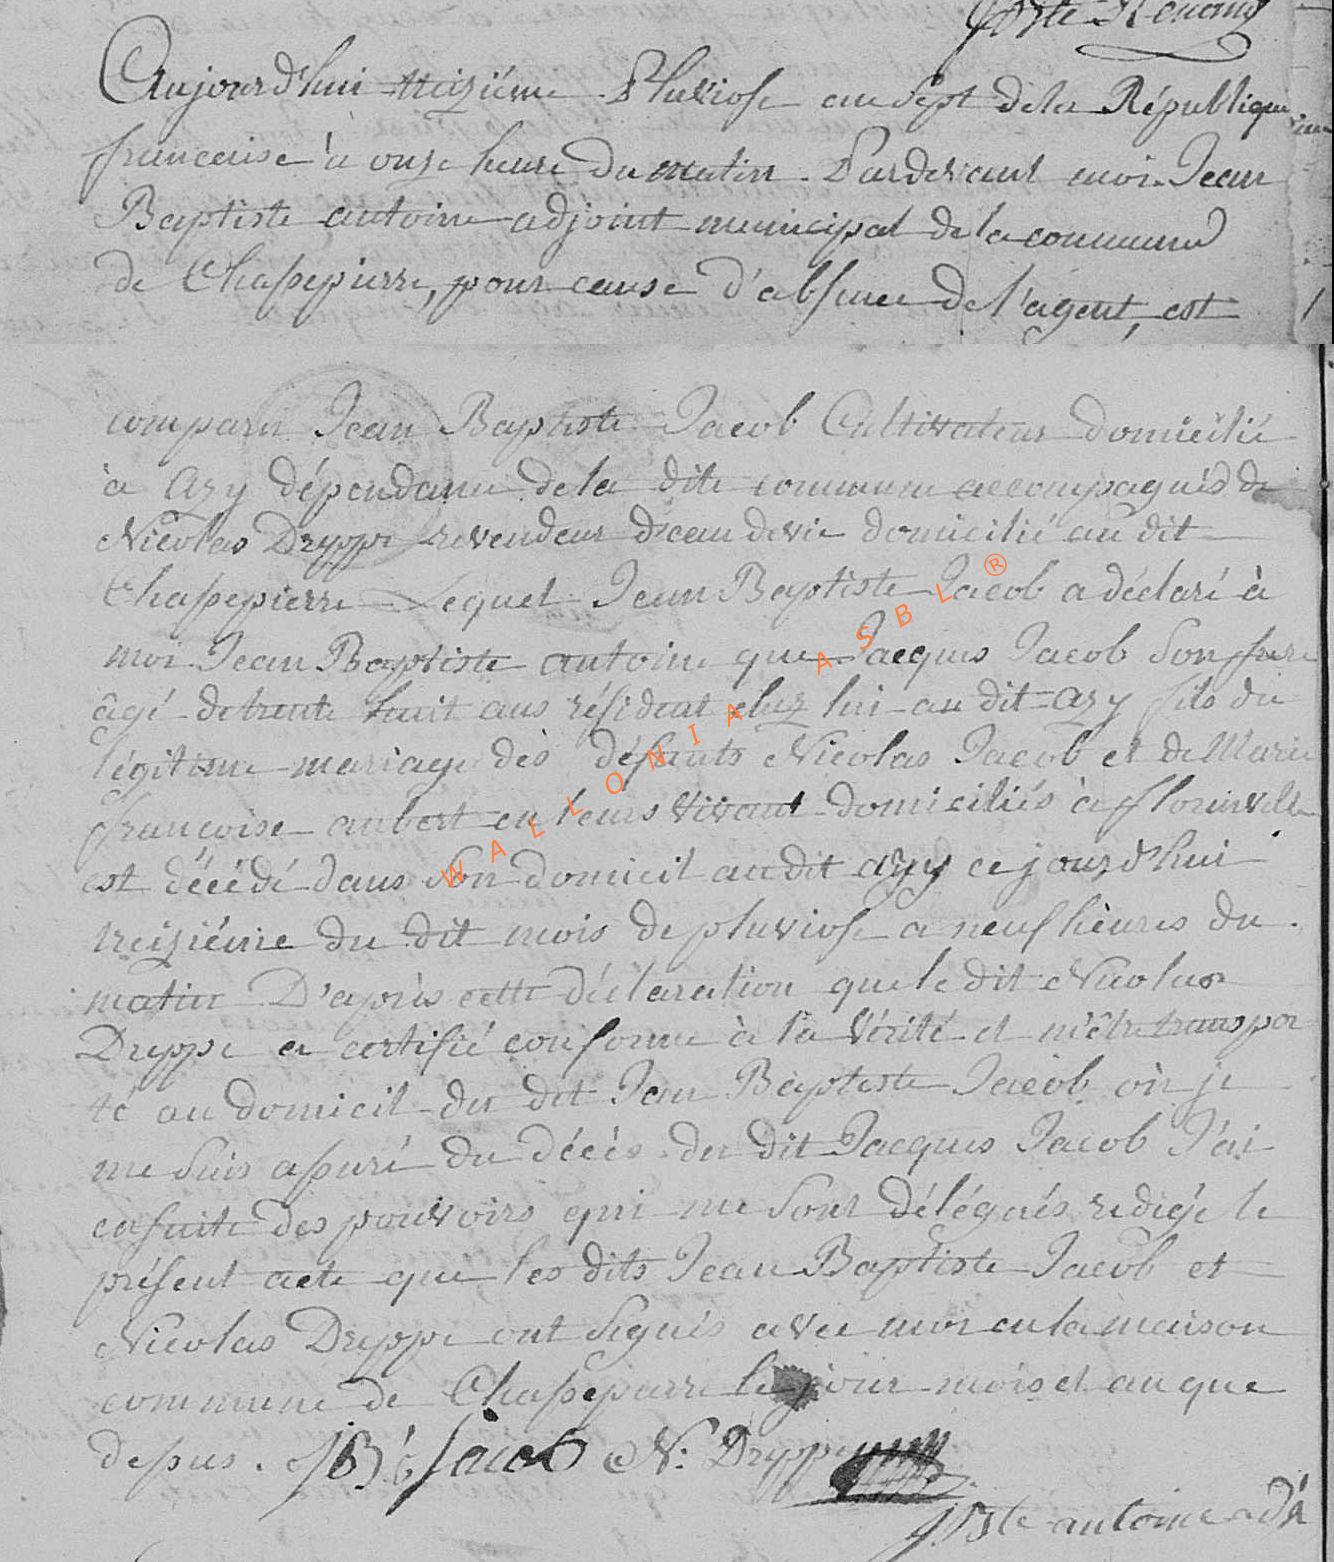 Jbste
Aujourd'hui treiziéme Pluviose an sept de la République
francaise à onze heure du matin. Pardevant moi Jean
Baptiste antoine adjoint municipal de la commune
de Chassepierre, pour cause d'absence de l'agent, est
comparu Jean Baptiste Jacob Cultivateur domicilié
à Azy dépendanne de la dite commune accompagnés de
Nicolas Dryppe revendeur d'eau de vie domicilié au dit
Chassepierre Lequel Jean Baptiste Jacob a déclaré à
moi Jean Baptiste antoine que Jacques Jacob Son frere
âgé de trente huit ans résident chez lui au dit azy fils du
légitime mariage dès défunts Nicolas Jacob et de Marie
francoise aubert en leurs vivant domiciliés à florinville
est décédé dans Son domicil au dit azy ce jourd'hui
treiziéme du dit mois de pluviose a neuf heures du
matin D'après cette déclaration que le dit Nicolas
Dryppe a certifié conforme à la vérité et m'être transpor
té au domicil du dit Jean Baptiste Jacob où je
me Suis assuré du décès du dit Jacques Jacob J'ai
ensuite des pouvoirs qui me Sont délégués redigé le
présent acte que les dits Jean Baptiste Jacob et
Nicolas Dryppe ont Signés avec moi en la maison
commune de Chassepierre le jour mois et an que
depus. JBt Jacob N: Dryppe
J Bte antoine adt
WALLONIA ASBL ®